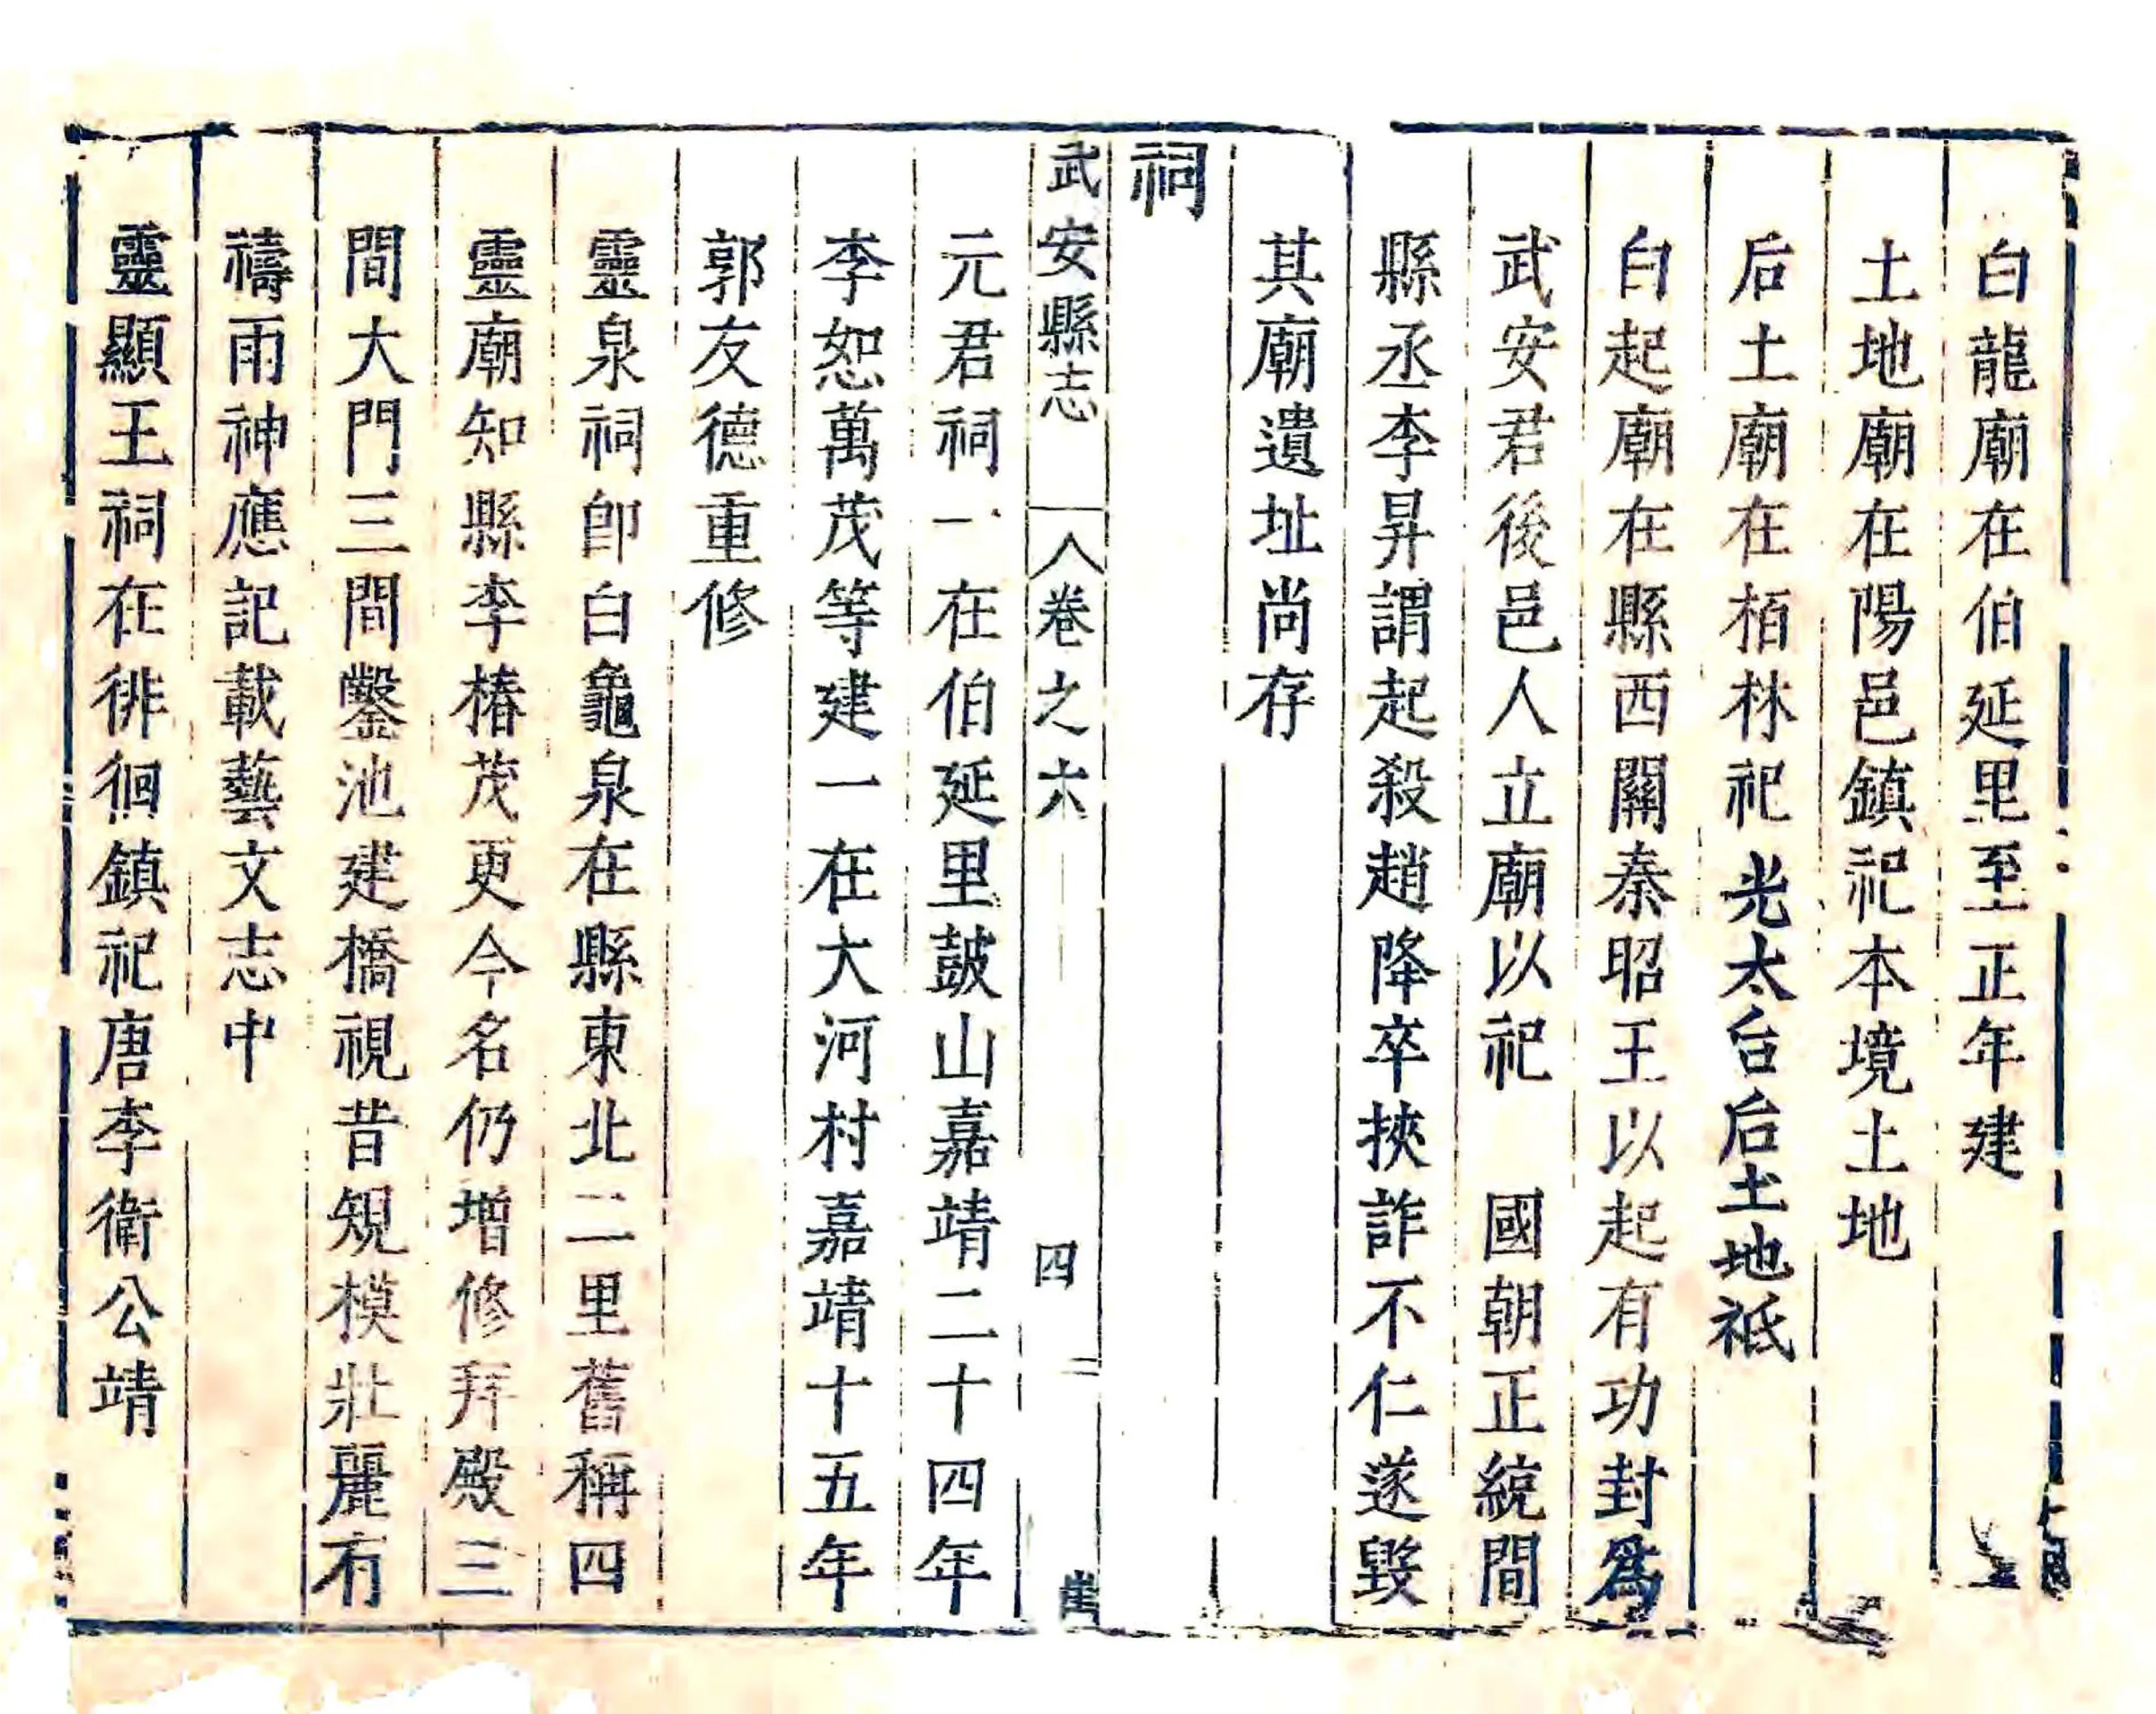 白龍廟在伯延里至正年建
土地廟在陽邑鎮祀本境土地
后土廟在栢林祀光太台后土地祇
白起廟在縣西關秦昭王以起有功封爲
武安君後邑人立廟以祀　國朝正統間
縣丞李昇謂起殺趙降卒挾詐不仁遂毀
其廟遺址尚存
祠
武安縣志　卷之六　四
元君祠一在伯延里鼓山嘉靖二十四年
李恕萬茂等建一在大河村嘉靖十五年
郭友德重修
靈泉祠卽白龜泉在縣東北二里舊稱四
靈廟知縣李椿茂更今名仍增修拜殿三
間大門三間鑿池建橋視昔規模壯麗有
禱雨神應記載藝文志中
靈顯王祠在徘徊鎮祀唐李衛公靖